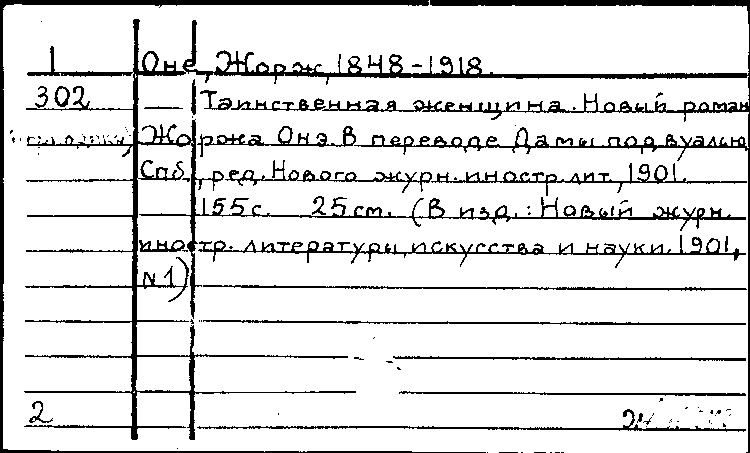 1 Онэ, Жорж, 1848-1918.
302 — Таинственная женщина. Новый роман
Жоржа Онэ. В переводе Дамы под вуалью
Спб., ред. Нового журн. иностр. лит., 1901.
155с. 25см. (В изд.: Новый журн.
иностр. литературы, искусства и науки. 1901,
N 1)
2